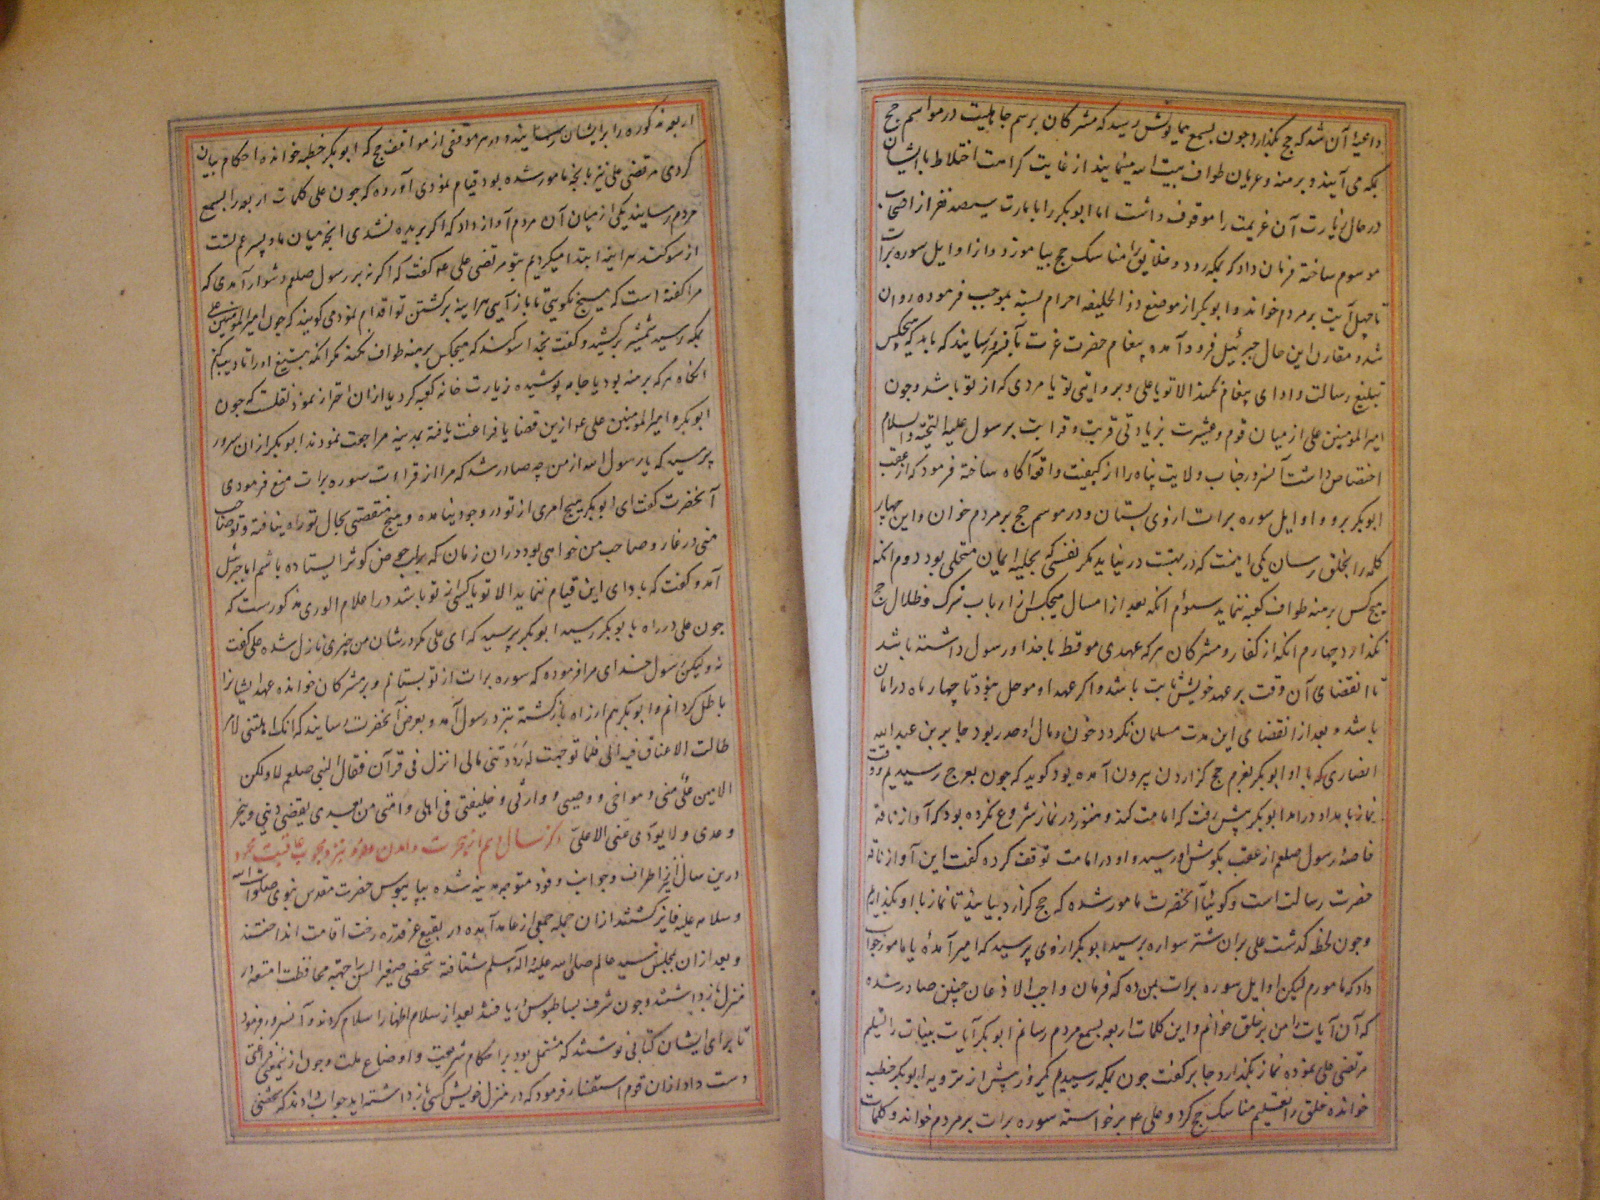 داعیهٔ آن شد که حج بگذارد چون بسمع همایونش رسید که مشرکان برسم جاهلیت در مواسم حج
بمکه می آیند و برهنه و عریان طواف بیت الله مینمایند از غایت کراهت اختلاط با ایشان
در حال زیارت آن عزیمت را موقوف داشت اما ابوبکر را بامارت سیصد نفر از اصحاب
موسوم ساخته فرمان داد که بمکه رود و خلایق را مناسک حج بیاموزد و از اوایل سوره برأت
تا چهل آیت بر مردم خواند و ابوبکر از موضع ذو الحلیفه احرام بسته بموجب فرموده روان
شد و مقارن این حال جبرئیل فرود آمده پیغام حضرت عزت بآنسرور رسانید که باید که هیچکس
تبلیغ رسالت و ادای پیغام نکند الا تو یا علی و بروایتی تو یا مردی که از تو باشد و چون
امیر المومنین علی از میان قوم و عشیرت بزیادتی قربت و قرابت بر رسول علیه التحیة والسلام
اختصاص داشت آنسرور جناب ولایت پناه را از کیفیت واقعه آگاه ساخته فرمود که از عقب
ابوبکر برو و اوایل سوره برات ازوی بستان و در موسم حج بر مردم خوان و این چهار
کلمه را بخلق رسان یکی اینست که در بهشت در نیاید مگر نفسی که بحلیه ایمان متحلی بود دوم آنکه
هیچ کس برهنه طواف کعبه ننماید سوم آنکه بعد از امسال هیچکس از ارباب شرک و ظلال حج
نگذارد چهارم آنکه از کفار و مشرکان هر که عهدی موقت با خدا و رسول داشته باشد
تا انقضای آن وقت بر عهد خویش ثابت باشد و اگر عهد او موجل نبود تا چهار ماه در امان
باشد و بعد از انقضای این مدت مسلمان نگردد خون و مال او هدر بود جابر بن عبد الله
انصاری که با ابوبکر بعزم حج گزاردن بیرون آمده بود گوید که چون بعرج رسیدیم وقت
نماز بامداد درآمد ابوبکر پیش رفت که امامت کند و هنوز در نماز شروع نکرده بود که آواز ناقه
خاصهٔ رسول صلعم از عقب بگوش او رسید و او در امامت توقف کرده گفت این آواز ناقه
حضرت رسالت است و گوئیا آنحضرت مامور شده که حج گزارد بیائید تا نماز با او بگذاریم
و چون لحظه گذشت علی بر آن شتر سواره برسید ابوبکر از وی پرسید که امیر آمدهٔ یا مامور جواب
داد که مامورم لیکن اوایل سوره برات بمن ده که فرمان واجب الاذعان چنین صادر شده
که آن آیات را من بر خلق خوانم و این کلمات اربعه بسمع مردم رسانم ابوبکر آیات بینات را تسلیم
مرتضی علی نموده نماز بگذارد جابر گفت چون بمکه رسیدیم یکروز پیش از ترویه ابوبکر خطبه
خوانده خلق را تعلیم مناسک حج کرد و علی ع برخواسته سوره برات بر مردم خواند و کلمات
اربعه مذکوره را بر ایشان رسانید و در هر موقفی از مواقف حج که ابوبکر خطبه خوانده احکام بیان
کردی مرتضی علی نیز بآنچه مامور شده بود قیام نمودی آورده که چون علی کلمات اربعه را بسمع
مردم رسانید یکی از میان آن مردم آواز داد که اگر بریده نشدی آنچه میان ما و پسر عم تست
از سوکند هر آینه ابتدا میکردیم بتو مرتضی علی ع گفت که اگر نه بر رسول صلعم دشوار آمدی که
مرا گفته است که هیچ نگوئی تا باز آیی هر آینه برکشتن تو اقدام نمودمی گویند که چون امیر المومنین علی
بمکه رسید شمشیر برکشید و گفت بخدا سوگند که هیچکس برهنه طواف نکند مگر آنکه بتیغ او را تادیب کنم
آنگاه هر که برهنه بود یا جامه پوشیده زیارت خانه کعبه کرد یا از آن احتراز نمود نقلست که چون
ابوبکر و امیر المومنین علی ع ازین قضایا فراغت یافته بمدینه مراجعت نمودند ابوبکر از آن سرور
پرسید که یا رسول الله از من چه صادر شد که مرا از قراءت سوره برات منع فرمودی
آنحضرت گفت ای ابوبکر هیچ امری از تو در وجود نیامده و هیچ منقصتی بحال تو راه نیافته و تو صاحب
منی در غار و صاحب من خواهی بود در آن زمان که بر لب حوض کوثر ایستاده باشم اما جبرئیل
آمد و گفت که بادای این قیام ننماید الا تو یا کسی که از تو باشد در اعلام الوری مذکورست که
چون علی در راه بابوبکر رسید ابوبکر پرسید که ای علی مگر در شان من چیزی نازل شده علی گفت
نه ولیکن رسول خدای مرا فرموده که سوره برات از تو بستانم و بر مشرکان خوانده عهد ایشانرا
باطل گردانم و ابوبکر هم از راه بازگشته نزد رسول آمد و بعرض آنحضرت رسانید که انک اهلتنی لامر
طالت الاعناق فیه الی فلما توجهت له رددتنی مالی انزل فی قرآن فقال النبی صلعم لا ولکن
الامین علی منی و مواخی و وصیی و وارثی و خلیفتی فی اهلی و امتی من بعدی یقضی دینی و ینجز
وعدی و لا یودی عنی الا علی ذکر سال دهم از هجرت
درین سال نیز از اطراف و جوانب وفود متوجه مدینه شده بپایبوس حضرت مقدس نبوی صلوات الله
و سلامه علیه فایز گشتند از آن جمله جمعی از غامد آمده در بقیع غرقد رخت اقامت انداختند
و بعد از آن بمجلس سید عالم صلی الله علیه و آله وسلم شتافته شخصی صغیر السن را جهت محافظت امتعه در
منزل بازداشتند و چون شرف بساط بوس دریافتند بعد از سلام اظهار اسلام کردند و آنسرور فرمود
تا برای ایشان کتابی نوشتند که مشتمل بود بر احکام شریعت و اوضاع ملت و چون ازین معنی فراغتی
دست داد از آن قوم استفسار فرمود که در منزل خویش کسی بازداشته اید جواب دادند که شخصی